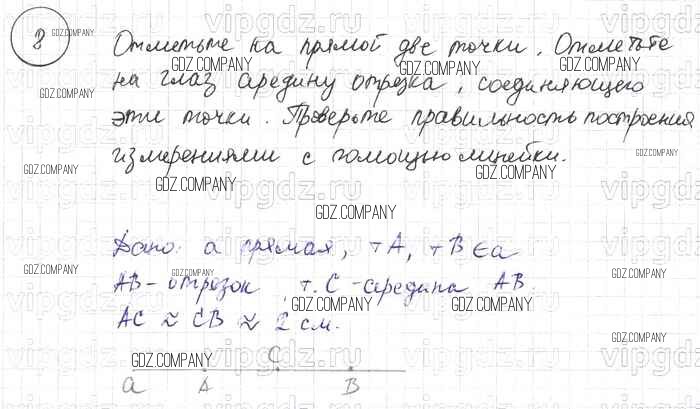 8
Отметьте на прямой две точки. Отметьте
на глаз средину отрезка, соединяющего
эти точки. Проверьте правильность построения
измерениями с помощью линейки.
Дано: a прямая, т A, т B ∈ a
AB - отрезок т. C - средина AB.
AC ≈ CB ≈ 2 см.
C
a A B
GDZ.COMPANY
vipgdz.ru